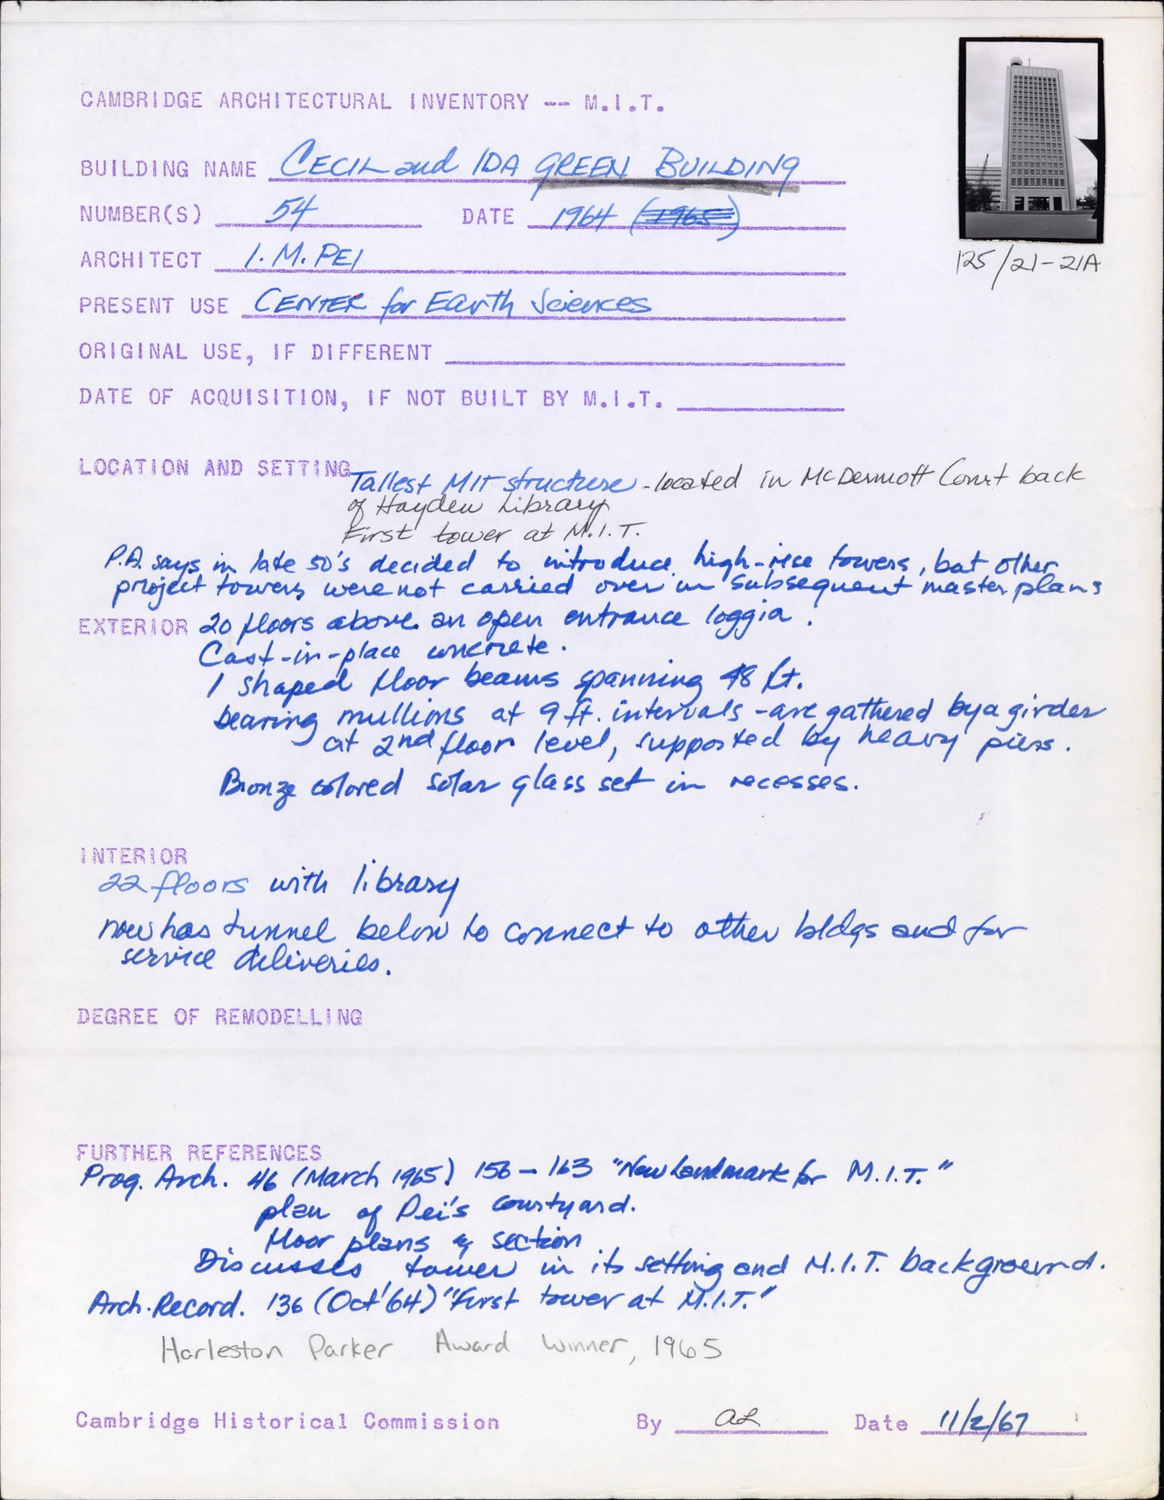 CAMBRIDGE ARCHITECTURAL INVENTORY -- M.I.T.
BUILDING NAME CECIL and IDA GREEN BUILDING
NUMBER(S) 54 DATE 1964 (1965)
ARCHITECT I. M. PEI
125/21-21A
PRESENT USE CENTER for Earth Sciences
ORIGINAL USE, IF DIFFERENT
DATE OF ACQUISITION, IF NOT BUILT BY M.I.T.
LOCATION AND SETTING Tallest MIT structure - located in McDermott Court back
of Hayden Library
First tower at M.I.T.
P.A. says in late 50's decided to introduce high-rise towers, but other
project towers were not carried over in subsequent master plans
EXTERIOR 20 floors above an open entrance loggia.
Cast-in-place concrete.
I shaped floor beams spanning 48 ft.
bearing mullions at 9 ft. intervals - are gathered by a girder
at 2nd floor level, supported by heavy piers.
Bronze colored solar glass set in recesses.
INTERIOR
22 floors with library
now has tunnel below to connect to other bldgs and for
service deliveries.
DEGREE OF REMODELLING
FURTHER REFERENCES
Prog. Arch. 46 (March 1965) 156-163 "New Landmark for M.I.T."
plan of Pei's courtyard.
floor plans & section
Discusses tower in its setting and M.I.T. background.
Arch. Record. 136 (Oct '64) "First tower at M.I.T."
Harleston Parker Award Winner, 1965
Cambridge Historical Commission By Date 11/2/67